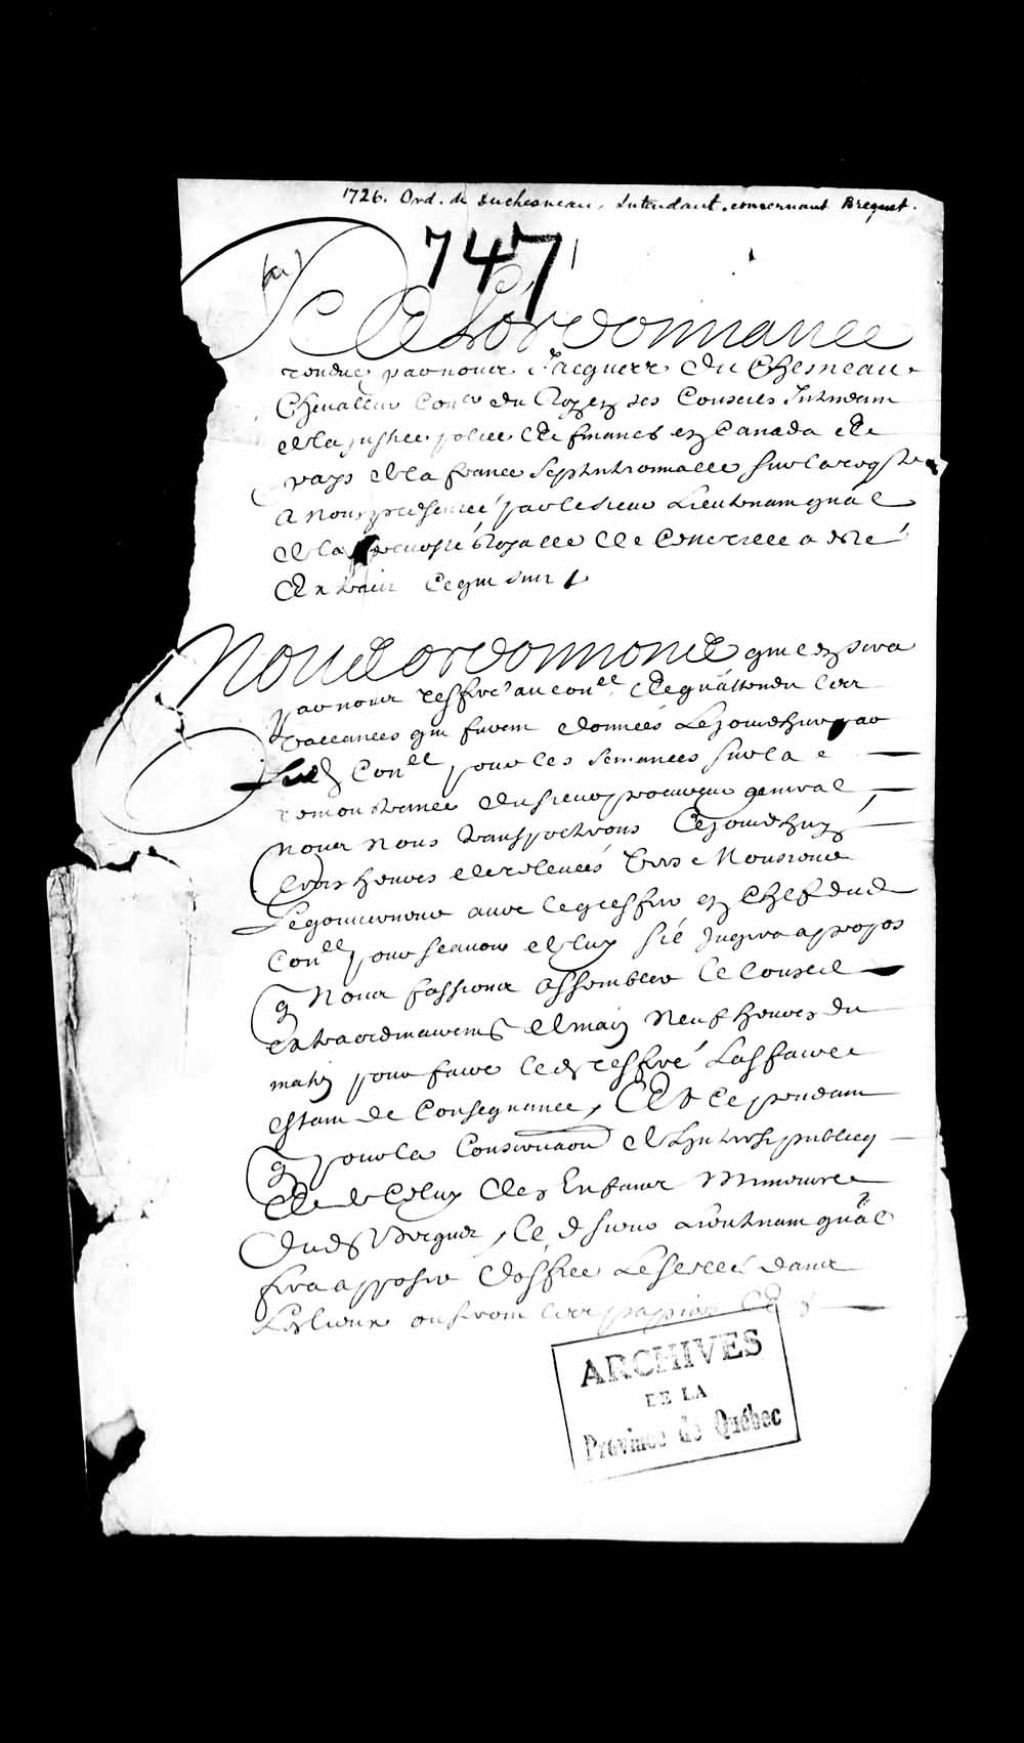 1726. Ord. de Duchesneau, Intendant, concernant Brequet.
747
De Lordonnance
rendue par nous Jacques Du Chesneau
Chevallier Con.er du Roy en ses Conseils Intendant
de la justice police & finances en Canada &
pays de la france septentrionnalle sur la reqte
A nous presenteé par le sieur Lieutenant gnãl
de la prevosté Royalle de ce a esté
Extraict ce qui suit
Nous ordonnons quil en sera
par nous refferé au con.el & quattendu les
vaccances qui furent donneés Lejourdhuy par
led Con.el pour les semances sur la
remonstrance du sieur procureur general
nous nous transporterons cejourdhuy
trois heures de releueés vers Monsieur
Le gouuerneur auec le greffier en chef dud
con.el pour scauoir de luy sil jugera apropos
q Nous fassions assembler le conseil
extraordinairement demain neuf heures du
matin pour faire led refferé Laffaire
estant de consequance, Et cependant
q pour la conservaõn de linterest publicq
& de celuy des Enfans mineures
dud Brequet, le d sieur Lieutenant gnãl
fera apposer doffice le scellé dans
Les lieux ou seront les papiers &
ARCHIVES
DE LA
Province de Québec